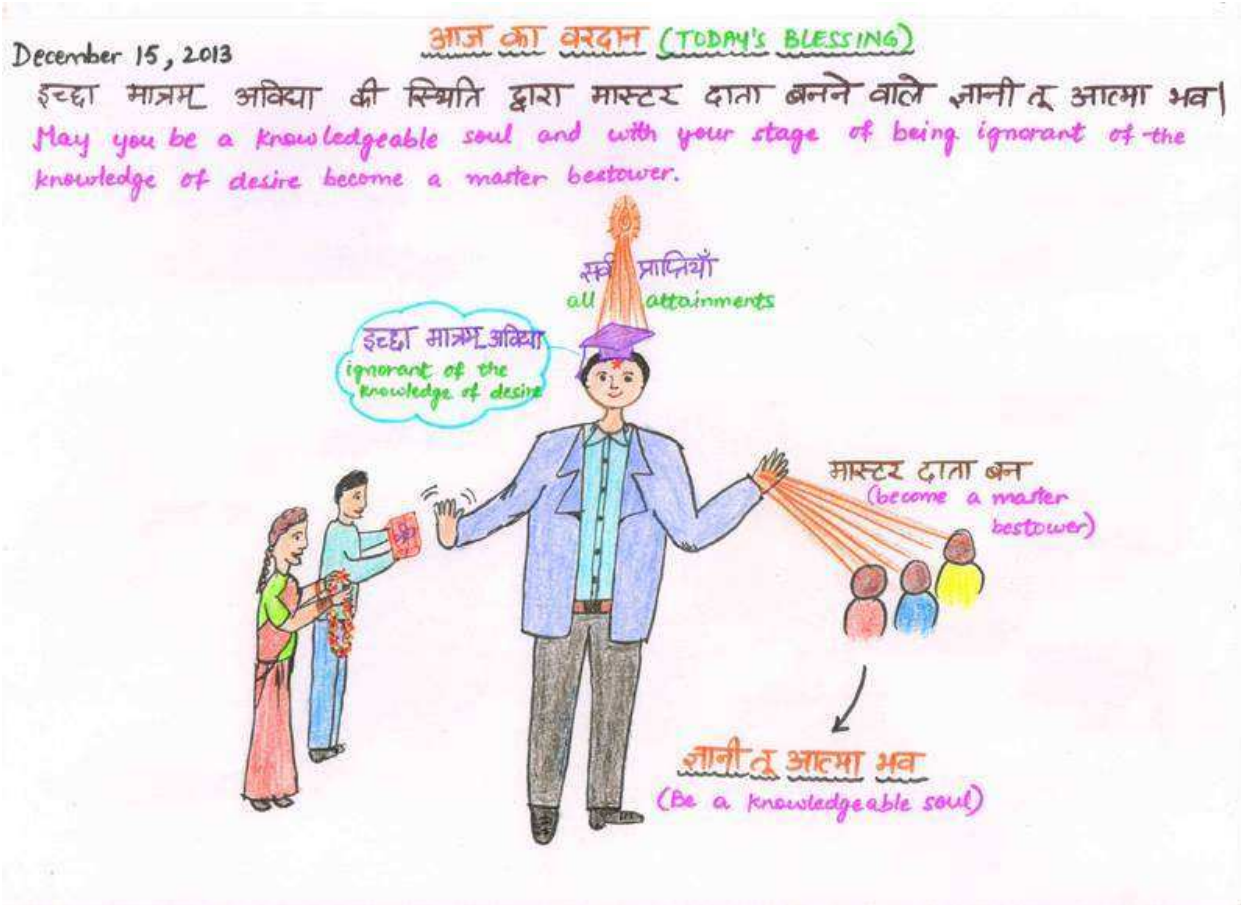 December 15, 2013
आज का वरदान (TODAY'S BLESSING)
इच्छा मात्रम् अविद्या की स्थिति द्वारा मास्टर दाता बनने वाले ज्ञानी तू आत्मा भव।
May you be a knowledgeable soul and with your stage of being ignorant of the
knowledge of desire become a master bestower.
सर्व प्राप्तियाँ
all attainments
इच्छा मात्रम् अविद्या
ignorant of the
knowledge of desire
मास्टर दाता बन
(become a master
bestower)
ज्ञानी तू आत्मा भव
(Be a knowledgeable soul)